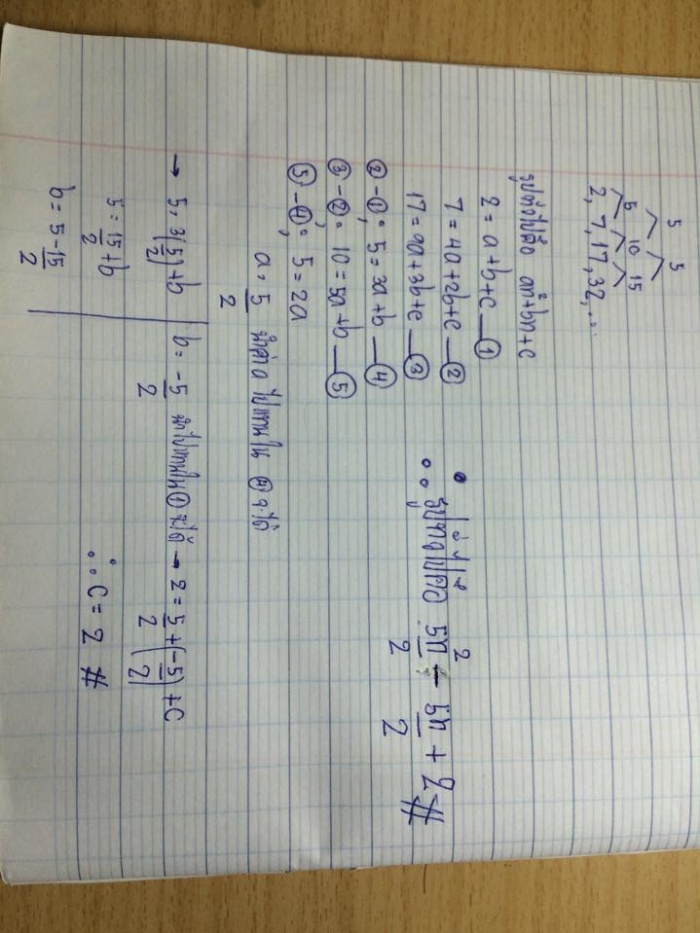 5 5
5 10 15
2, 7, 17, 32, ...
รูปทั่วไปคือ an²+bn+c
2 = a+b+c — ①
7 = 4a+2b+c — ②
17 = 9a+3b+c — ③
②-①; 5 = 3a+b — ④
③-②; 10 = 5a+b — ⑤
⑤-④; 5 = 2a
a = 5/2 นำค่า a ไปแทนใน ④ จะได้
→ 5 = 3(5/2)+b
5 = 15/2 + b
b = 5 - 15/2
b = -5/2 นำไปแทนใน ① จะได้ → 2 = 5/2 + (-5/2) + C
∴ C = 2 #
∴ รูปทั่วไปคือ 5n²/2 - 5n/2 + 2 #